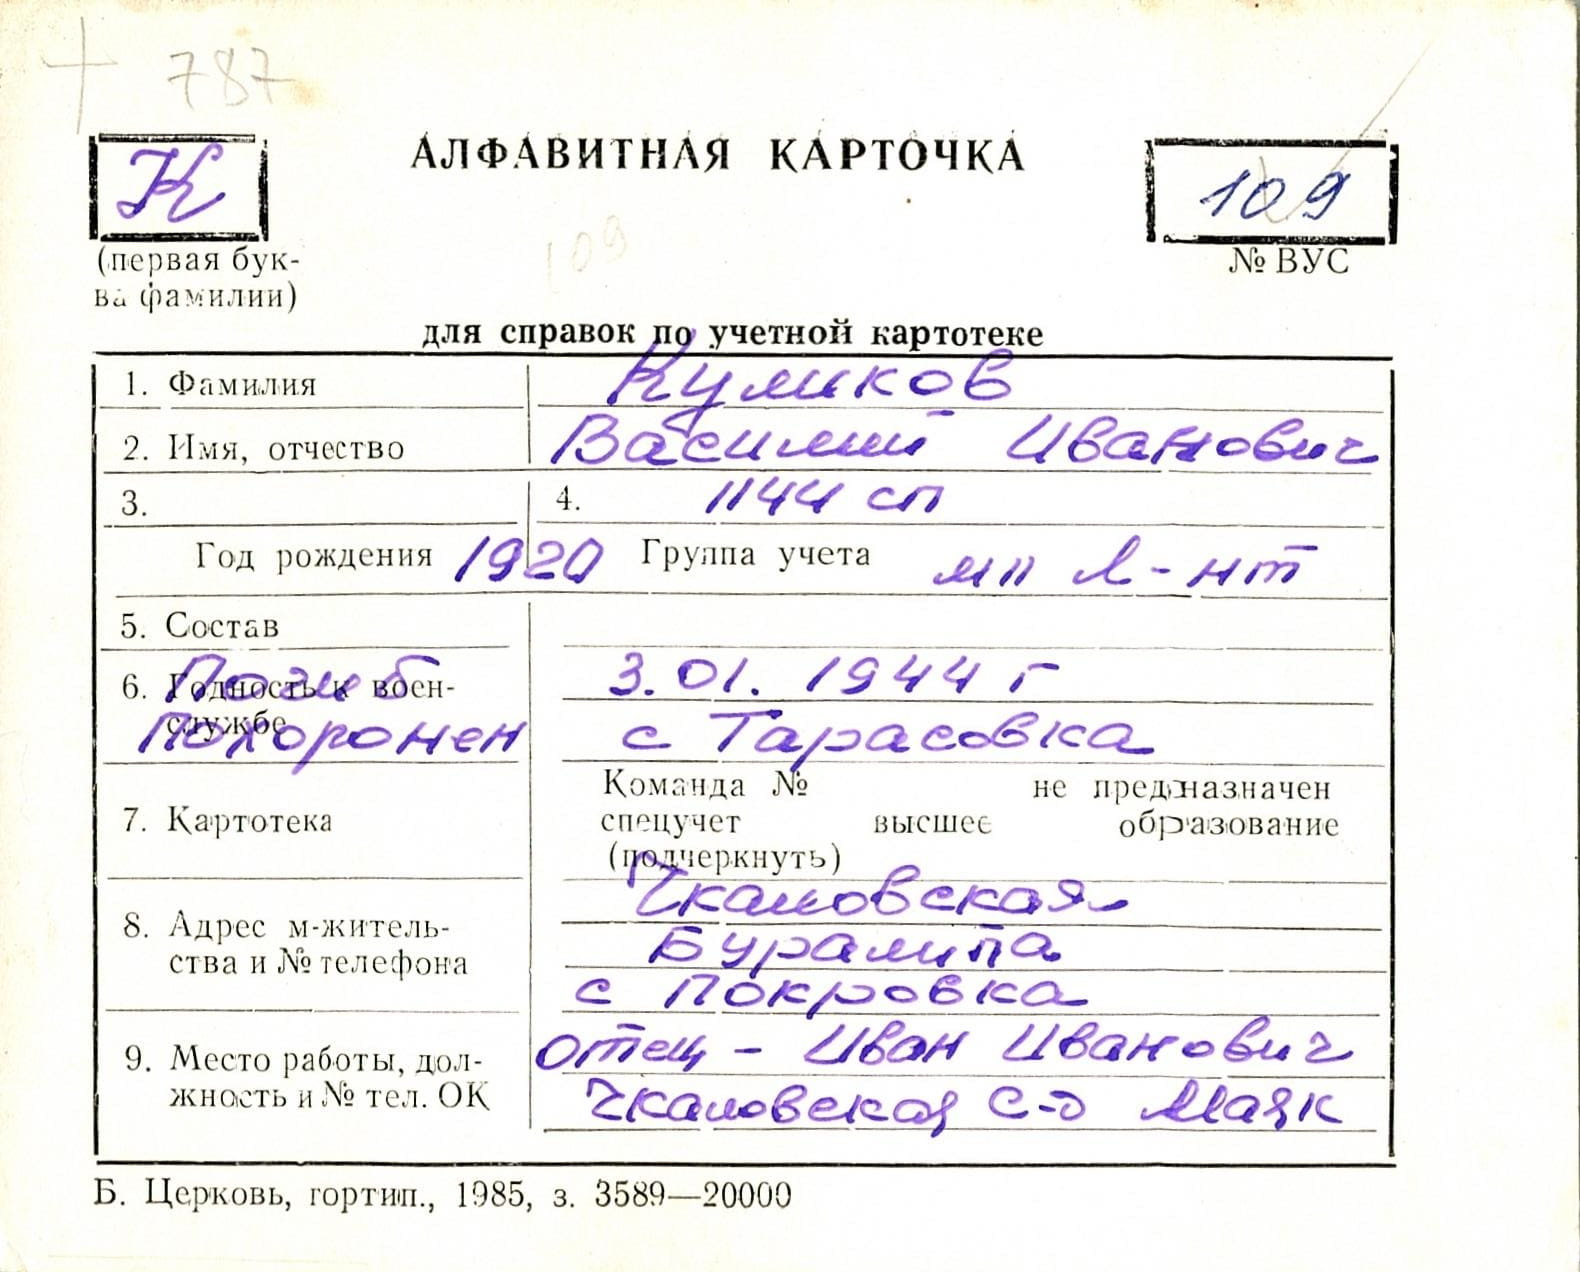 787
К
АЛФАВИТНАЯ КАРТОЧКА
109
(первая бук-
ва фамилии)
109
№ ВУС
для справок по учетной картотеке
1. Фамилия Куликов
2. Имя, отчество Василий Иванович
3. 4. 1144 сп
Год рождения 1920 Группа учета мл л-нт
5. Состав
6. Годность к воен-
службе
Погиб 3.01.1944 г
Похоронен с Тарасовка
7. Картотека
Команда № не предназначен
спецучет высшее образование
(подчеркнуть)
8. Адрес м-житель-
ства и № телефона
Чкаловская
Буралипа
с Покровка
9. Место работы, дол-
жность и № тел. ОК
отец - Иван Иванович
Чкаловская с-з Маяк
Б. Церковь, гортип., 1985, з. 3589—20000